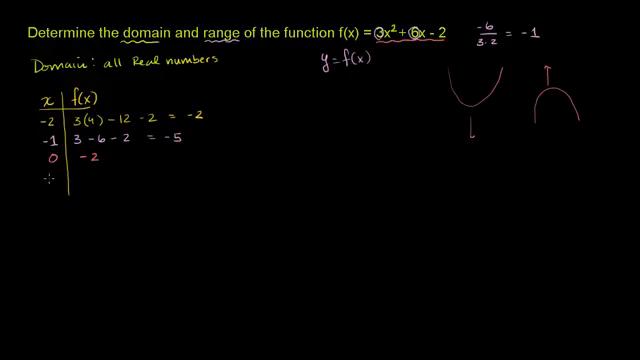 Determine the domain and range of the function f(x) = 3x² + 6x - 2
-6/3·2 = -1
Domain: all Real numbers
y = f(x)
x f(x)
-2 3(4) - 12 - 2 = -2
-1 3 - 6 - 2 = -5
0 -2